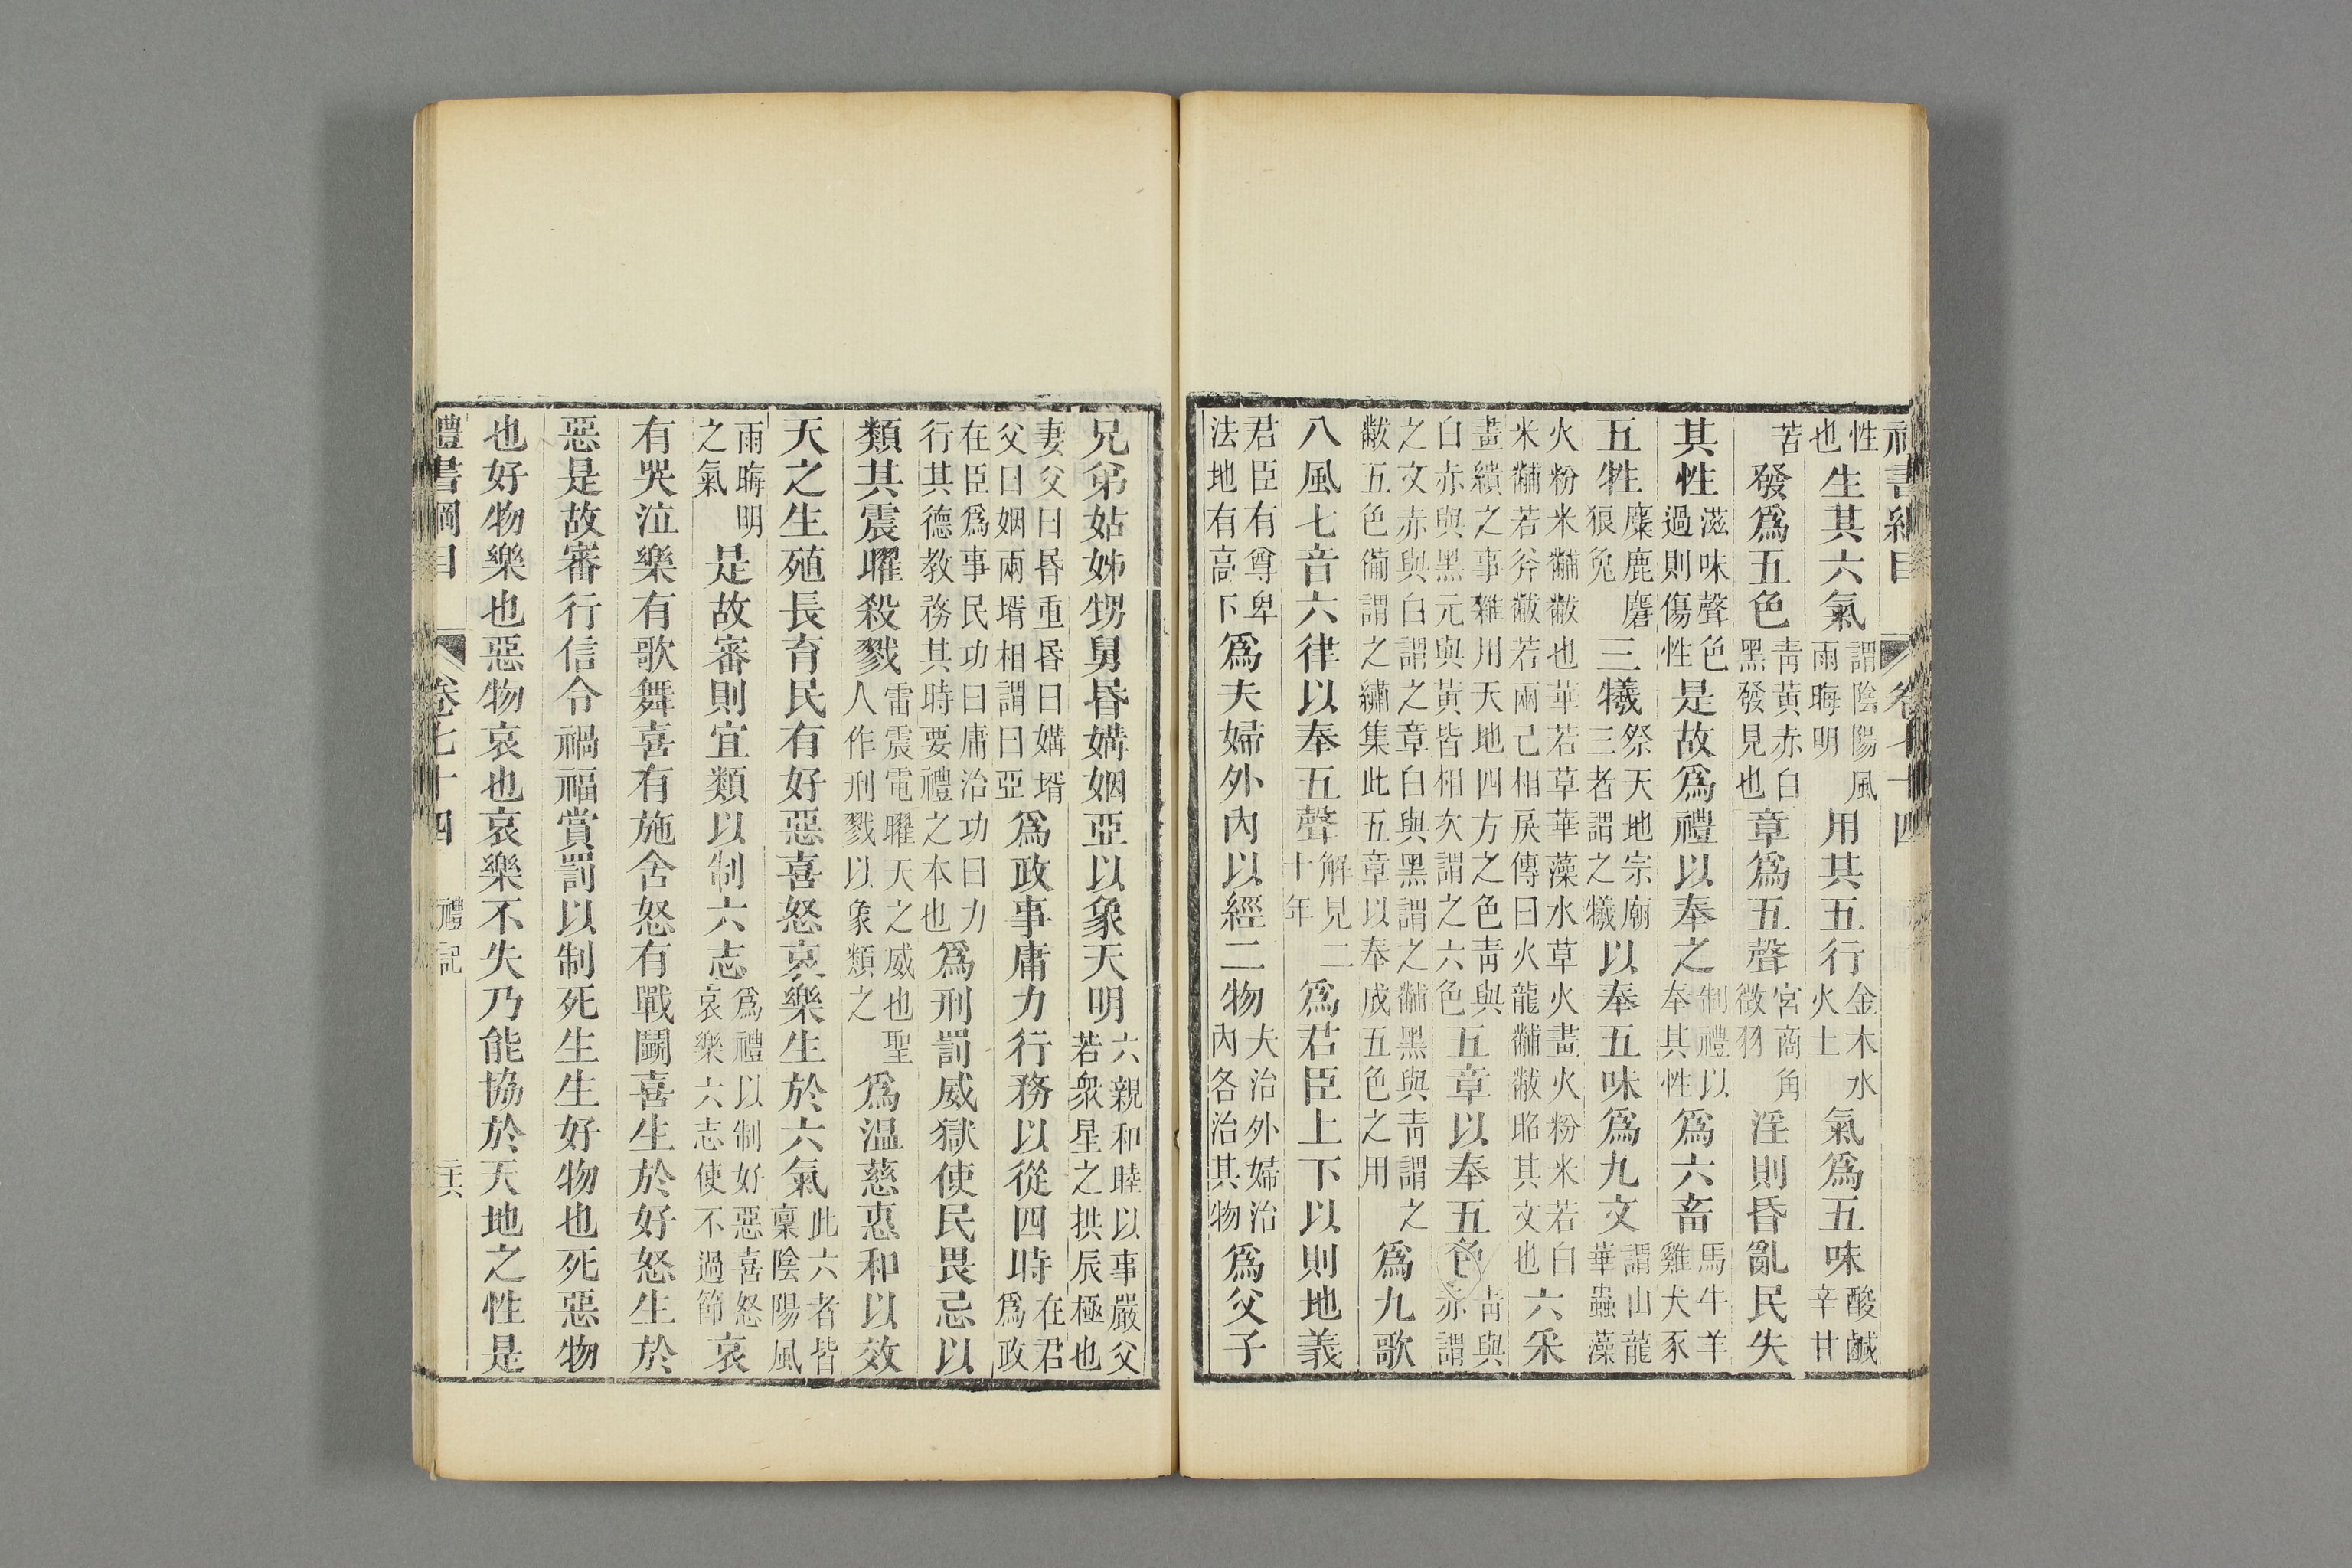 禮書綱目　卷七十四
性也生其六氣謂陰陽風雨晦明用其五行金木水火土氣爲五味酸鹹辛甘
苦發爲五色青黃赤白黑發見也章爲五聲宮商角徵羽淫則昏亂民失
其性滋味聲色過則傷性是故爲禮以奉之制禮以奉其性爲六畜馬牛羊雞犬豕
五牲麋鹿麏狼兔三犧祭天地宗廟三者謂之犧以奉五味爲九文謂山龍華蟲藻
火粉米黼黻也華若草華藻水草火畫火粉米若白米黼若斧黻若兩己相戾傳曰火龍黼黻昭其文也六采
畫繢之事雜用天地四方之色青與白赤與黑元與黃皆相次謂之六色五章以奉五色青與赤謂
之文赤與白謂之章白與黑謂之黼黑與青謂之黻五色備謂之繡集此五章以奉成五色之用爲九歌
八風七音六律以奉五聲解見二十年爲君臣上下以則地義
君臣有尊卑法地有高下爲夫婦外內以經二物夫治外婦治內各治其物爲父子
兄弟姑姊甥舅昏媾姻亞以象天明六親和睦以事嚴父若衆星之拱辰極也
妻父曰昏重昏曰媾壻父曰姻兩壻相謂曰亞爲政事庸力行務以從四時在君爲政
在臣爲事民功曰庸治功曰力行其德教務其時要禮之本也爲刑罰威獄使民畏忌以
類其震曜殺戮雷震電曜天之威也聖人作刑戮以象類之爲温慈惠和以效
天之生殖長育民有好惡喜怒哀樂生於六氣此六者皆稟陰陽風
雨晦明之氣是故審則宜類以制六志爲禮以制好惡喜怒哀樂六志使不過節哀
有哭泣樂有歌舞喜有施舍怒有戰鬭喜生於好怒生於
惡是故審行信令禍福賞罰以制死生生好物也死惡物
也好物樂也惡物哀也哀樂不失乃能協於天地之性是
禮書綱目　卷七十四　禮記　二六